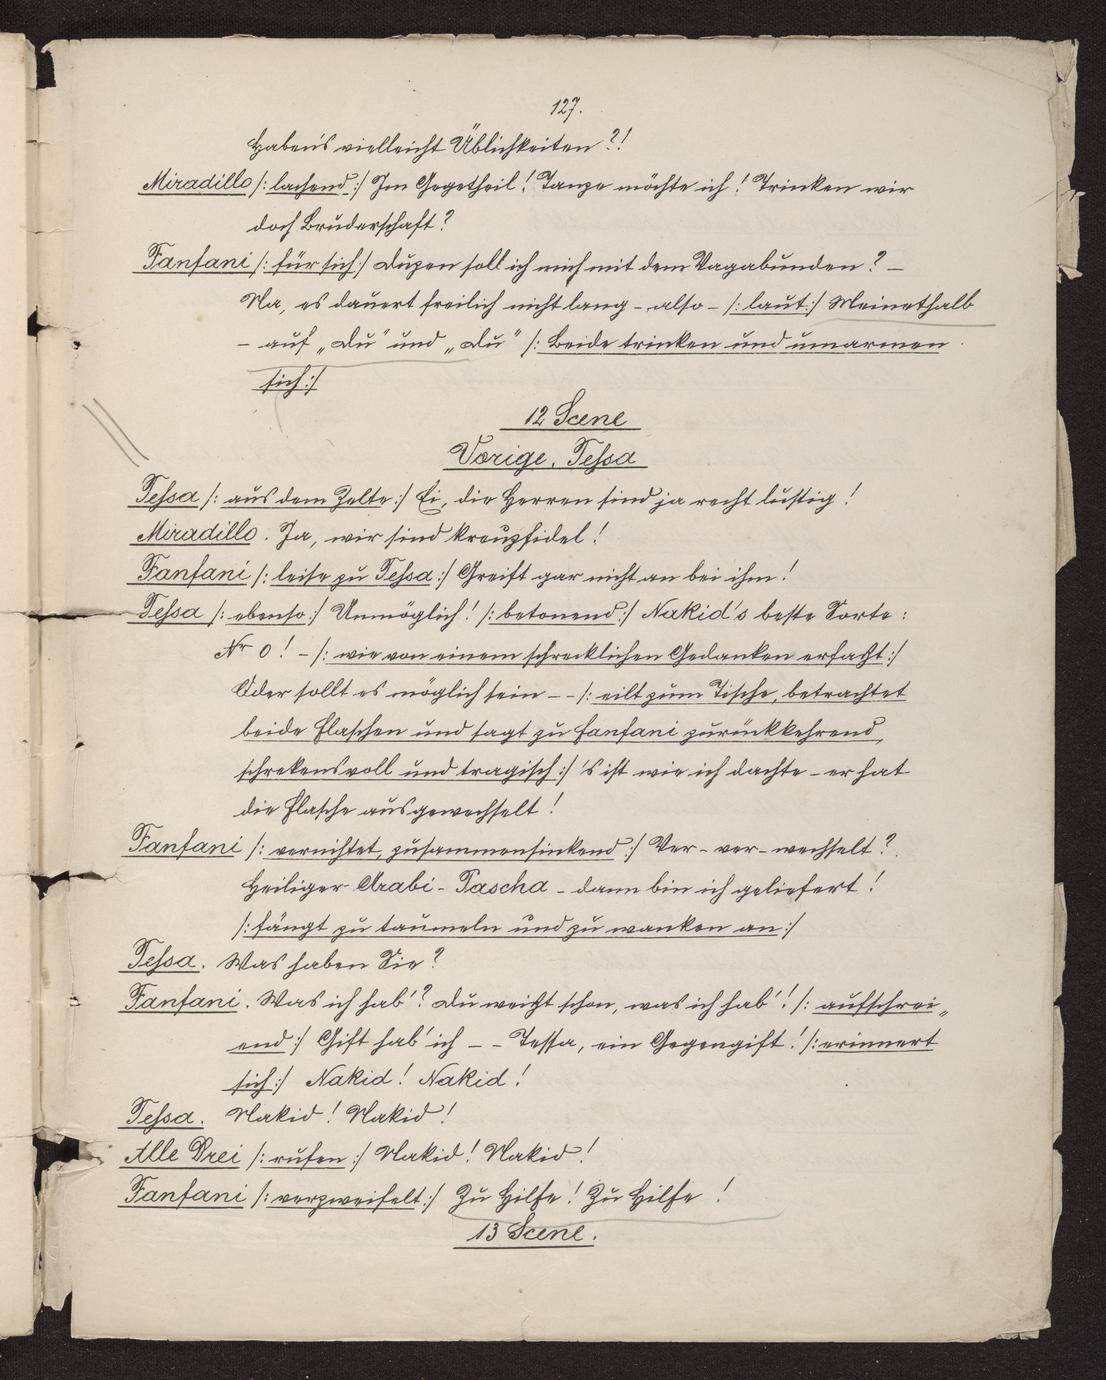 127.
Haben's vielleicht Üblichkeiten?!
Miradillo /: lachend :/ Im Gegetheil! Tanze möchte ich! Trinken wir
doch Bruderschaft?
Fanfani /: für sich :/ Duzen soll ich mich mit dem Vagabunden? –
Na, es dauert freilich nicht lang – also – /: laut :/ Meinethalb
– auf „Du" und „Du" /: Beide trinken und umarmen
sich :/
12 Scene
Vorige. Tessa
Tessa /: aus dem Zelte :/ Ei, die Herren sind ja recht lustig!
Miradillo. Ja, wir sind kreuzfidel!
Fanfani /: leise zu Tessa :/ Greift gar nicht an bei ihm!
Tessa /: ebenso :/ Unmöglich! /: betonend :/ Nakid's beste Sorte:
Nr 0! – /: wie von einem schrecklichen Gedanken erfaßt :/
Oder sollt es möglich sein – – /: eilt zum Tische, betrachtet
beide Flaschen und sagt zu Fanfani zurückkehrend,
schrekensvoll und tragisch :/ 's ist wie ich dachte – er hat
die Flasche ausgewechselt!
Fanfani /: vernichtet, zusammensinkend :/ Ver- ver- wechselt?
Heiliger Arabi-Pascha – dann bin ich geliefert!
/: fängt zu taumeln und zu wanken an :/
Tessa. Was haben Sie?
Fanfani. Was ich hab'? Du weißt schon, was ich hab'! /: aufschrei„
end :/ Gift hab' ich – – Tessa, ein Gegengift! /: erinnert
sich :/ Nakid! Nakid!
Tessa. Nakid! Nakid!
Alle Drei /: rufen :/ Nakid! Nakid!
Fanfani /: verzweifelt :/ Zu Hilfe! Zu Hilfe!
13 Scene.